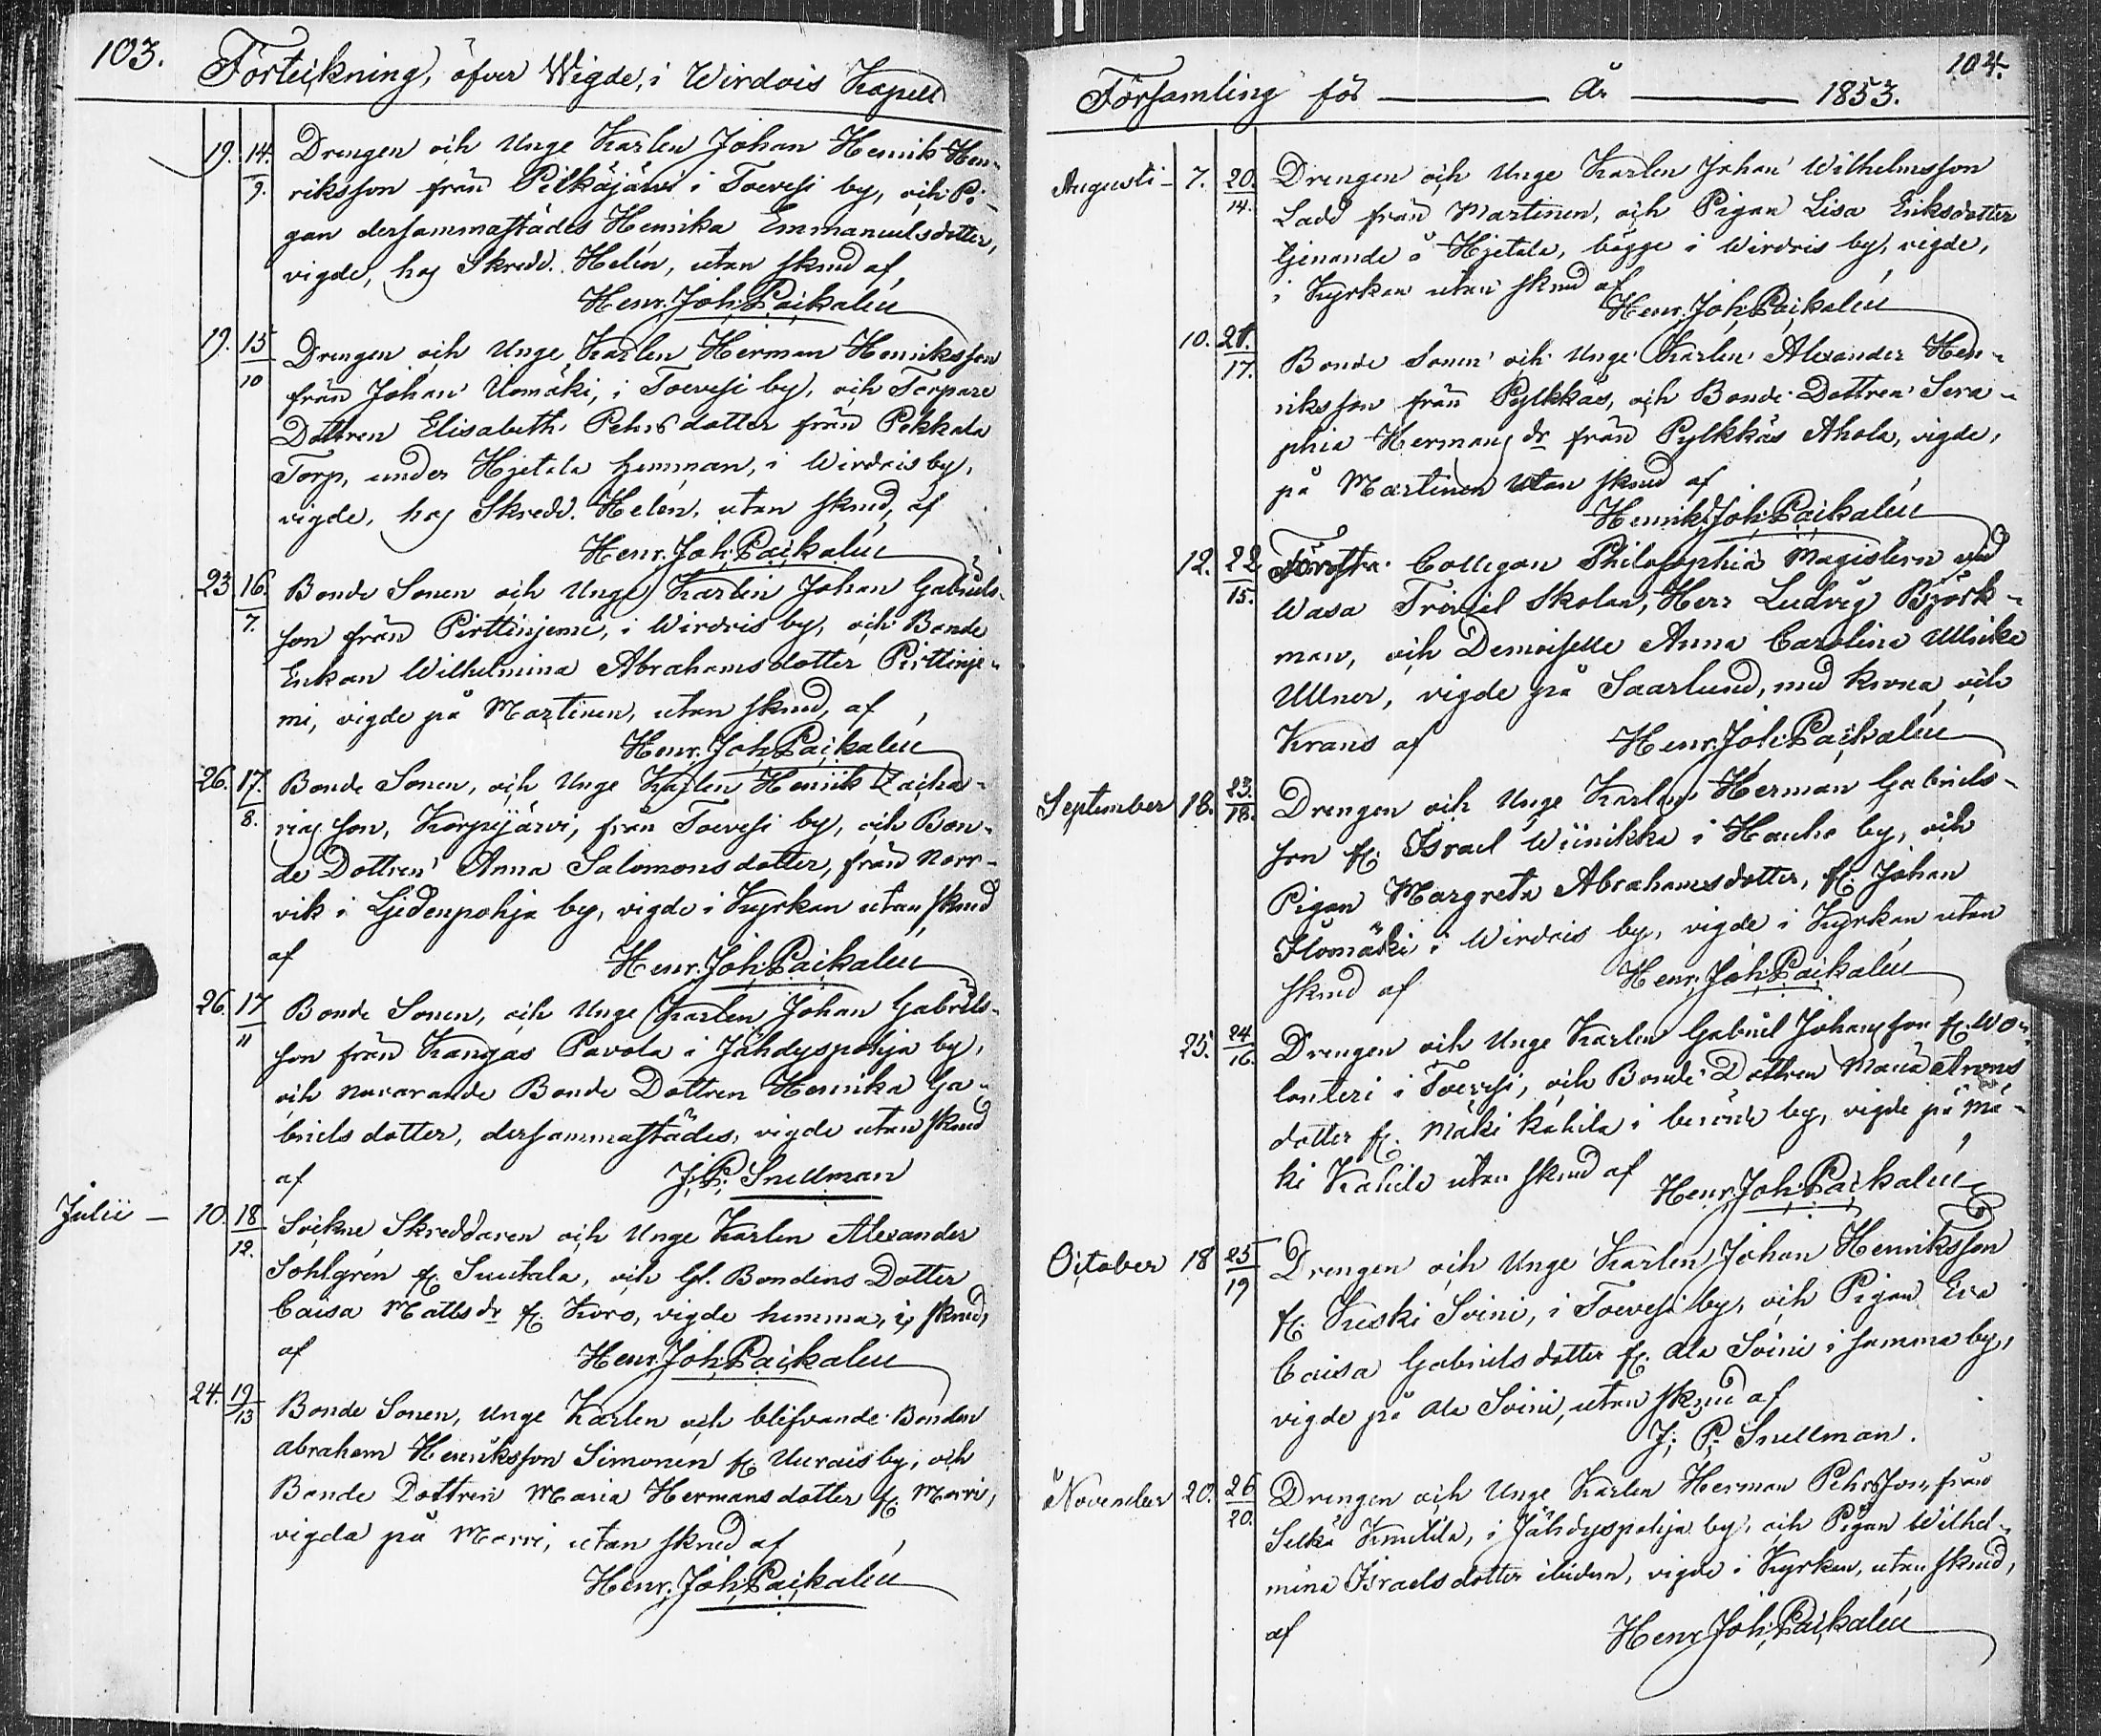 103.
Förteckning, öfver Wigde, i Wirdois Kapell
19. 14./9. Drengen och Unge Karlen Johan Henrik Hen-
riksson från Pitkäjärvi i Toevesi by, och Pi-
gan dersammastädes Henrika Emmanuelsdotter,
vigde, hos Skredd. Helén, utan skrud af,
Henr. Joh. Paikalén
19. 15/10 Drengen och Unge Karlen Herman Henriksson
från Johan Uomäki, i Toevesi by, och Torpare
Dottren Elisabeth Pehrsdotter från Pekkala
Torp, under Hjetala hemman, i Wirdois by,
vigde, hos Skredd. Helén, utan skrud, af
Henr. Joh. Paikalén
23. 16./7. Bonde Sonen och Unge Karlen Johan Gabriels-
son från Pirttinjemi, i Wirdois by, och Bonde
Enkan Wilhelmina Abrahamsdotter Pirttinje-
mi, vigde på Martinen, utan skrud, af
Henr. Joh. Paikalén
26. 17./8. Bonde Sonen, och Unge Karlen Henrik Zacha-
riasson, Korpijärvi, från Toevesi by, och Bon-
de Dottren Anna Salomonsdotter, från Norr-
vik i Ljedenpohja by, vigde i Kyrkan utan skrud
af Henr. Joh. Paikalén
26. 17/11 Bonde Sonen, och Unge Karlen Johan Gabriels-
son från Kangas Pavola i Jähdyspohja by,
och navarande Bonde Dottren Henrika Ga-
brielsdotter, dersammastädes, vigde utan skrud
af J. P. Snellman
Julii — 10. 18/12. Sockne Skreddaren och Unge Karlen Alexander
Sohlgrén fr. Suutala, och Gl. Bondens Dotter
Caisa Mattsdr fr. Koro, vigde hemma, i skrud,
af Henr. Joh. Paikalén
24. 19/13 Bonde Sonen, Unge Karlen och blifvande Bonden
Abraham Henriksson Simonen fr. Uurais by, och
Bonde Dottren Maria Hermansdotter fr. Marri,
vigda på Marri, utan skrud af
Henr. Joh. Paikalén
104.
Församling för — År — 1853.
Augusti — 7. 20./14. Drengen och Unge Karlen Johan Wilhelmsson
Ladd från Martinen, och Pigan Lisa Eriksdotter
tjenande å Hjetala, bägge i Wirdois by, vigde,
i Kyrkan utan skrud af
Henr. Joh. Paikalén
10. 21./17. Bonde Sonen och Unge Karlen Alexander Hen-
riksson från Pylkkäs, och Bonde Dottren Sera-
phia Hermans dr från Pylkkäs Ahola, vigde,
på Martinen utan skrud af
Henrik Joh. Paikalén
12. 22/15. Första Collegan Philosophiæ Magistern vid
Wasa Trivial Skolan, Herr Ludvig Björk-
man, och Demoiselle Anna Carolina Ullrika
Ullner, vigde på Saarlund, med krona och
Krans af Henr. Joh. Paikalén
September 18. 23./18. Drengen och Unge Karlen Herman Gabriels-
son fr. Israel Wiinikka i Hauho by, och
Pigan Margreta Abrahamsdotter, fr. Johan
Flomäki i Wirdois by, vigde i Kyrkan utan
skrud af Henr. Joh. Paikalén
25. 24/16. Drengen och Unge Karlen Gabriel Johansson fr. Wo-
lonteri i Toevesi, och Bonde Dottren Maria Arons
dotter fr. Mäki Kahila i berörde by, vigde på Mä-
ki Kahila utan skrud af Henr. Joh. Paikalén
October 18 25/19 Drengen och Unge Karlen Johan Henriksson
fr. Keski Soini, i Toevesi by, och Pigan Eva
Caisa Gabrielsdotter fr. Ala Soini i samma by,
vigde på Ala Soini, utan skrud af
J. P. Snellman.
November 20. 26/20. Drengen och Unge Karlen Herman Pehrsson, från
Silkä Knutila, i Jähdyspohja by, och Pigan Wilhel-
mina Israelsdotter ibidem, vigde i Kyrkan, utan skrud,
af Henr. Joh. Paikalén